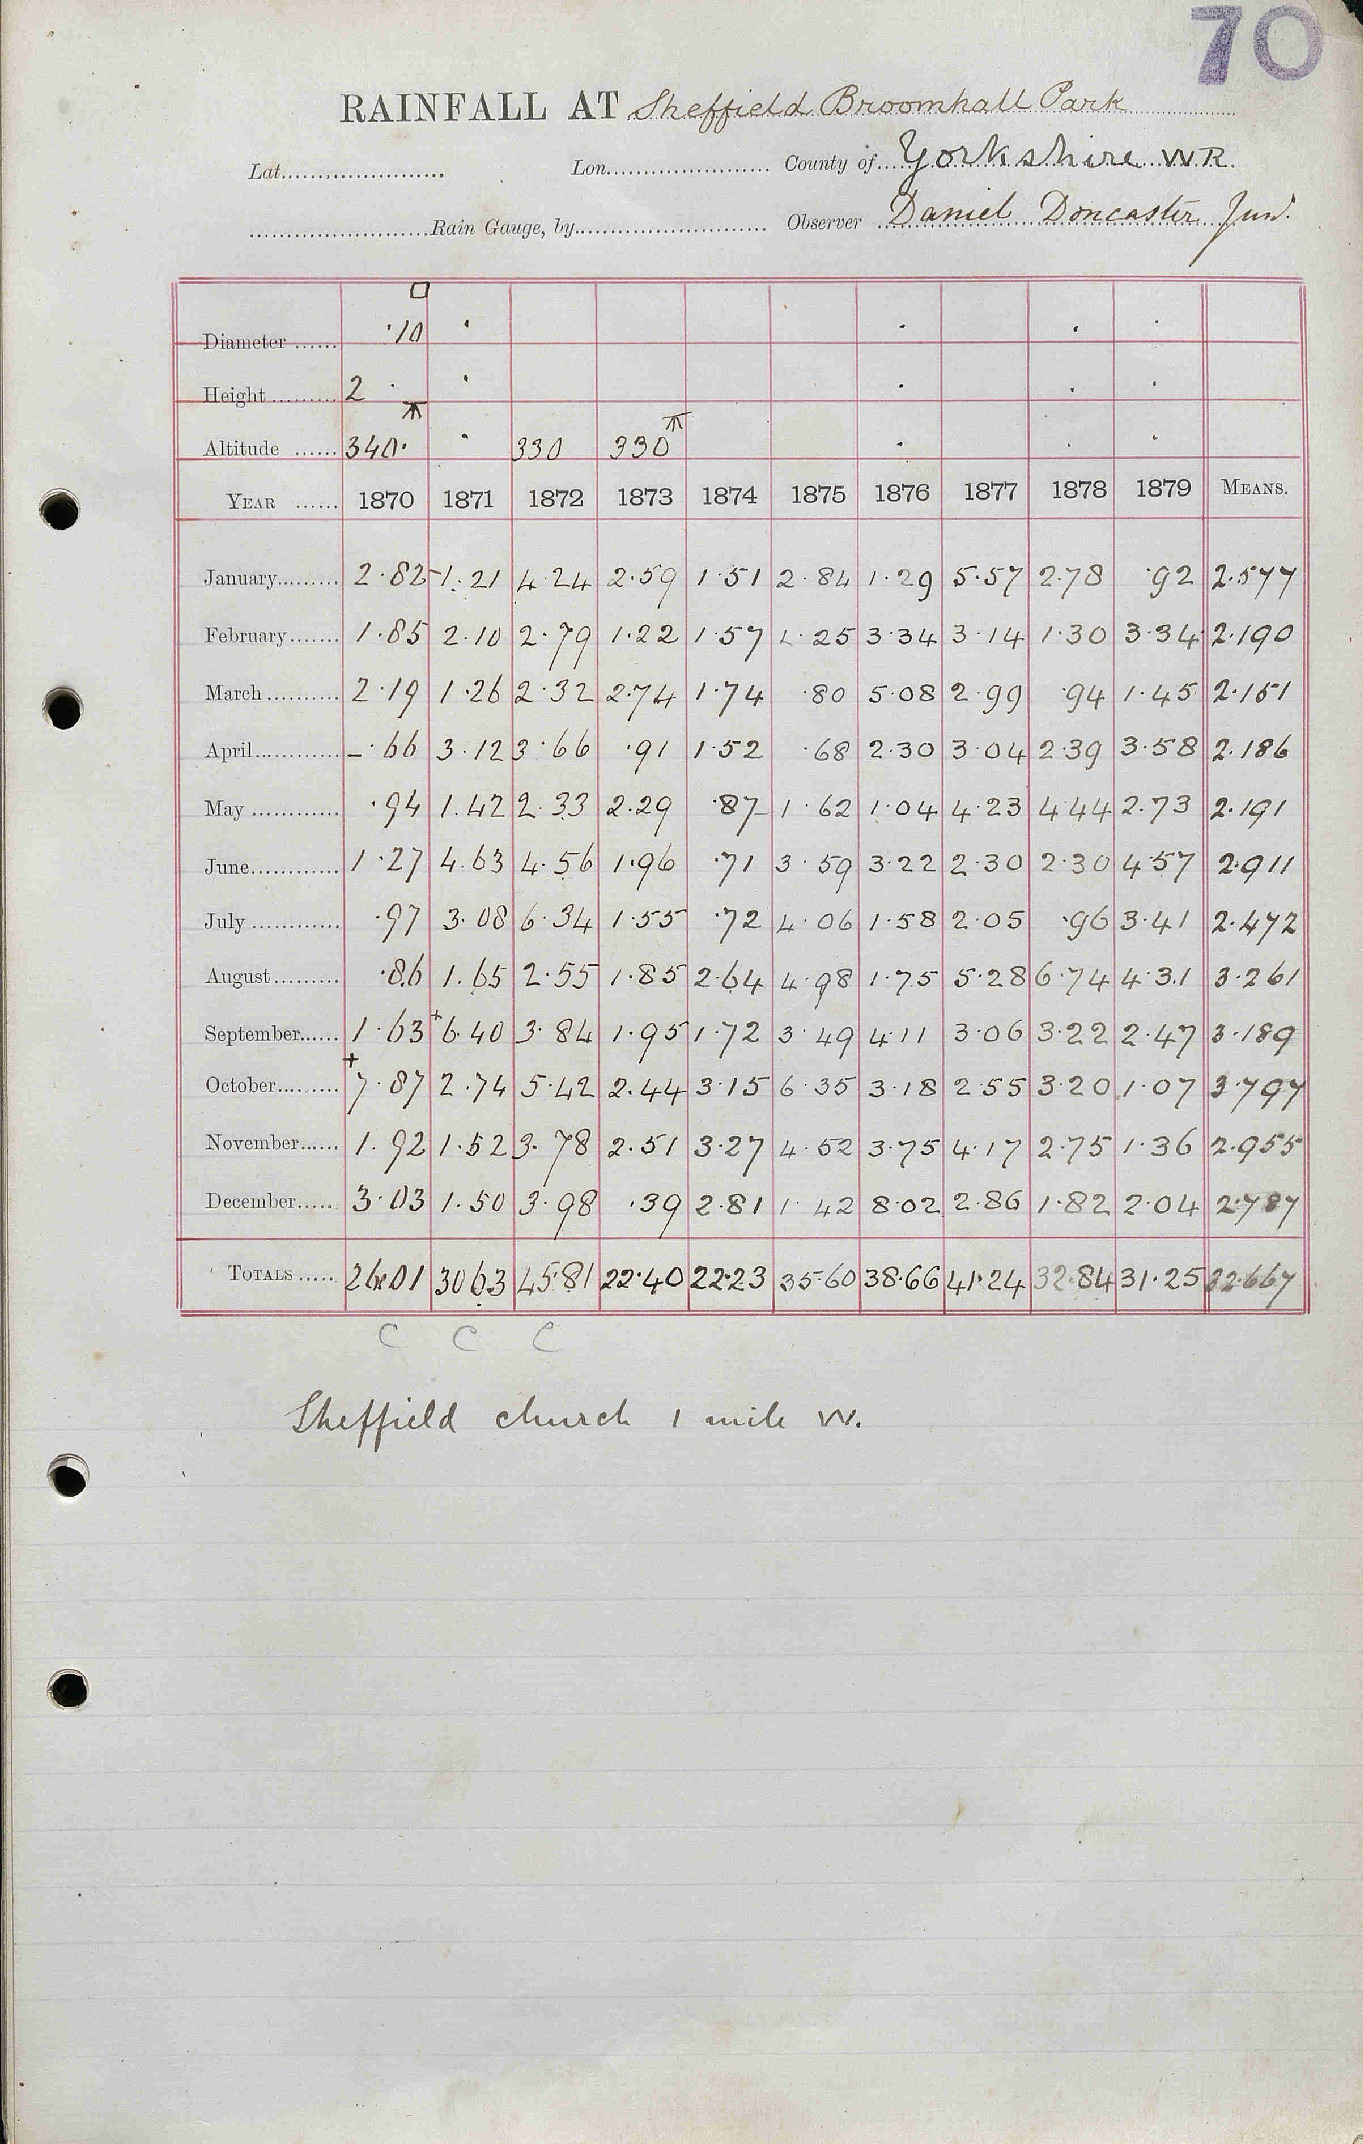 70
RAINFALL AT Sheffield Broomhall Park
Lat. Lon. County of Yorkshire W R.
Rain Gauge, by Observer Daniel Doncaster Junr.
Diameter ·10
Height 2
Altitude 340· 330 330
YEAR 1870 1871 1872 1873 1874 1875 1876 1877 1878 1879 MEANS.
January 2·82 1·21 4·24 2·59 1·51 2·84 1·29 5·57 2·78 ·92 2·577
February 1·85 2·10 2·79 1·22 1·57 1·25 3·34 3·14 1·30 3·34 2·190
March 2·19 1·26 2·32 2·74 1·74 ·80 5·08 2·99 ·94 1·45 2·151
April – ·66 3·12 3·66 ·91 1·52 ·68 2·30 3·04 2·39 3·58 2·186
May ·94 1·42 2·33 2·29 ·87 1·62 1·04 4·23 4·44 2·73 2·191
June 1·27 4·63 4·56 1·96 ·71 3·59 3·22 2·30 2·30 4·57 2·911
July ·97 3·08 6·34 1·55 ·72 4·06 1·58 2·05 ·96 3·41 2·472
August ·86 1·65 2·55 1·85 2·64 4·98 1·75 5·28 6·74 4·31 3·261
September 1·63 +6·40 3·84 1·95 1·72 3·49 4·11 3·06 3·22 2·47 3·189
October +7·87 2·74 5·42 2·44 3·15 6·35 3·18 2·55 3·20 1·07 3·797
November 1·92 1·52 3·78 2·51 3·27 4·52 3·75 4·17 2·75 1·36 2·955
December 3·03 1·50 3·98 ·39 2·81 1·42 8·02 2·86 1·82 2·04 2·787
TOTALS 26·01 30·63 45·81 22·40 22·23 35·60 38·66 41·24 32·84 31·25 32·667
C C C
Sheffield church 1 mile W.